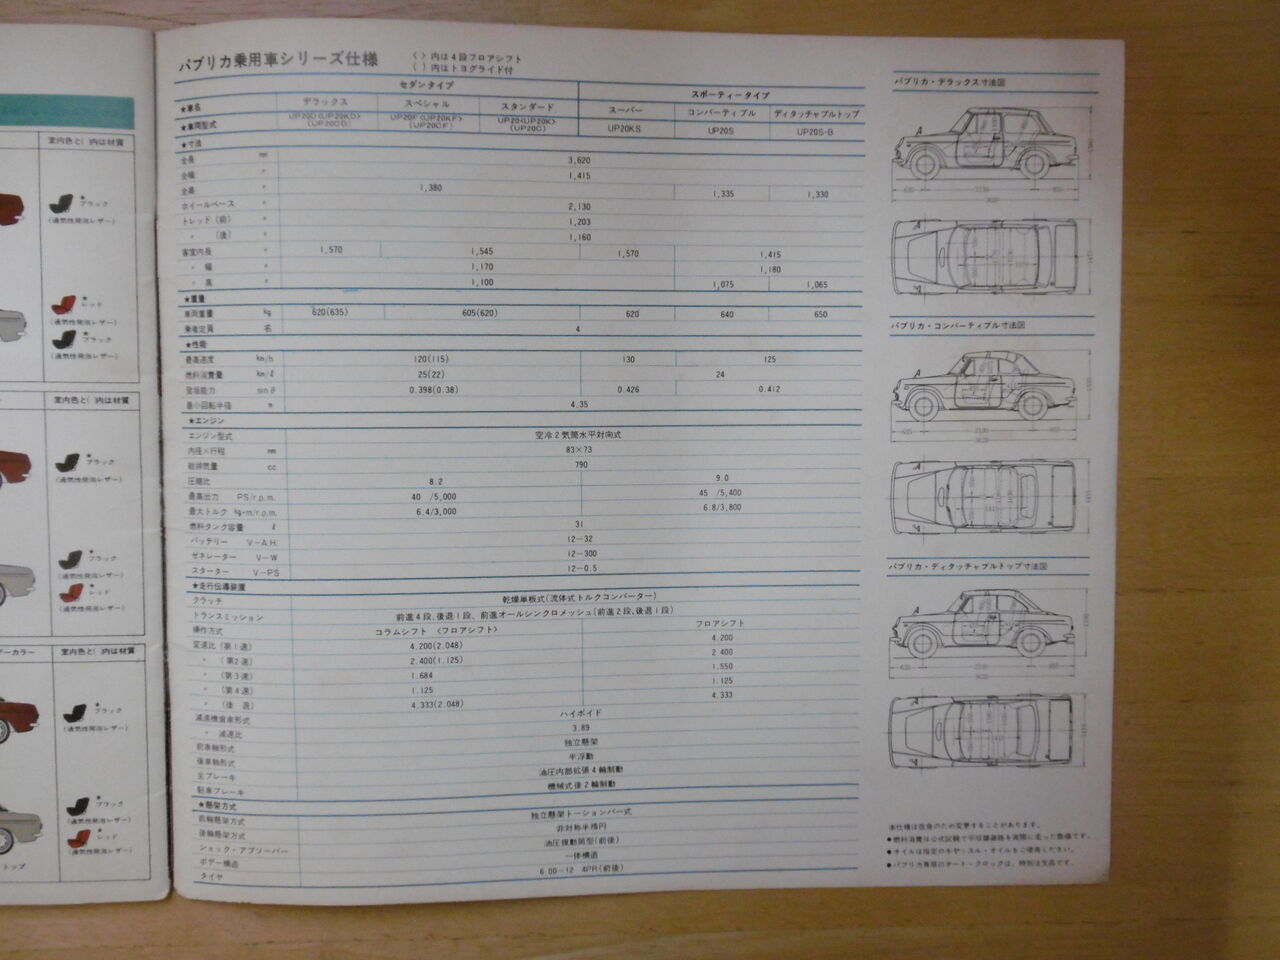 室内色と( )内は材質
ブラック
(通気性発泡レザー)
レッド
(通気性発泡レザー)
ブラック
(通気性発泡レザー)
室内色と( )内は材質
ブラック
(通気性発泡レザー)
ブラック
(通気性発泡レザー)
レッド
(通気性発泡レザー)
室内色と( )内は材質
ブラック
(通気性発泡レザー)
ブラック
(通気性発泡レザー)
レッド
(通気性発泡レザー)
トップ
パブリカ乗用車シリーズ仕様
〈 〉内は4段フロアシフト
( )内はトヨグライド付
セダンタイプ スポーティータイプ
★車名 デラックス スペシャル スタンダード スーパー コンバーティブル ディタッチャブルトップ
★車両型式 UP20D〈UP20KD〉(UP20CD) UP20F〈UP20KF〉(UP20CF) UP20〈UP20K〉(UP20C) UP20KS UP20S UP20S-B
★寸法
全長 mm 3,620
全幅 〃 1,415
全高 〃 1,380 1,335 1,330
ホイールベース 〃 2,130
トレッド(前) 〃 1,203
〃 (後) 〃 1,160
客室内長 〃 1,570 1,545 1,570 1,415
〃 幅 〃 1,170 1,180
〃 高 〃 1,100 1,075 1,065
★重量
車両重量 kg 620(635) 605(620) 620 640 650
乗車定員 名 4
★性能
最高速度 km/h 120(115) 130 125
燃料消費量 km/ℓ 25(22) 24
登坂能力 sinθ 0.398(0.38) 0.426 0.412
最小回転半径 m 4.35
★エンジン
エンジン型式 空冷2気筒水平対向式
内径×行程 mm 83×73
総排気量 cc 790
圧縮比 8.2 9.0
最高出力 PS/r.p.m. 40 /5,000 45 /5,400
最大トルク kg-m/r.p.m. 6.4/3,000 6.8/3,800
燃料タンク容量 ℓ 31
バッテリー V-A.H. 12-32
ゼネレーター V-W 12-300
スターター V-PS 12-0.5
★走行伝導装置
クラッチ 乾燥単板式(流体式トルクコンバーター)
トランスミッション 前進4段、後退1段、前進オールシンクロメッシュ(前進2段、後退1段)
操作方式 コラムシフト 〈フロアシフト〉 フロアシフト
変速比(第1速) 4.200(2.048) 4.200
〃 (第2速) 2.400(1.125) 2.400
〃 (第3速) 1.684 1.550
〃 (第4速) 1.125 1.125
〃 (後 退) 4.333(2.048) 4.333
減速機歯車形式 ハイポイド
〃 減速比 3.89
前車軸形式 独立懸架
後車軸形式 半浮動
主ブレーキ 油圧内部拡張4輪制動
駐車ブレーキ 機械式後2輪制動
★懸架方式
前輪懸架方式 独立懸架トーションバー式
後輪懸架方式 非対称半楕円
ショック・アブソーバー 油圧復動筒型(前後)
ボデー構造 一体構造
タイヤ 6.00-12 4PR(前後)
パブリカ・デラックス寸法図
パブリカ・コンバーティブル寸法図
パブリカ・ディタッチャブルトップ寸法図
本仕様は改良のため変更することがあります。